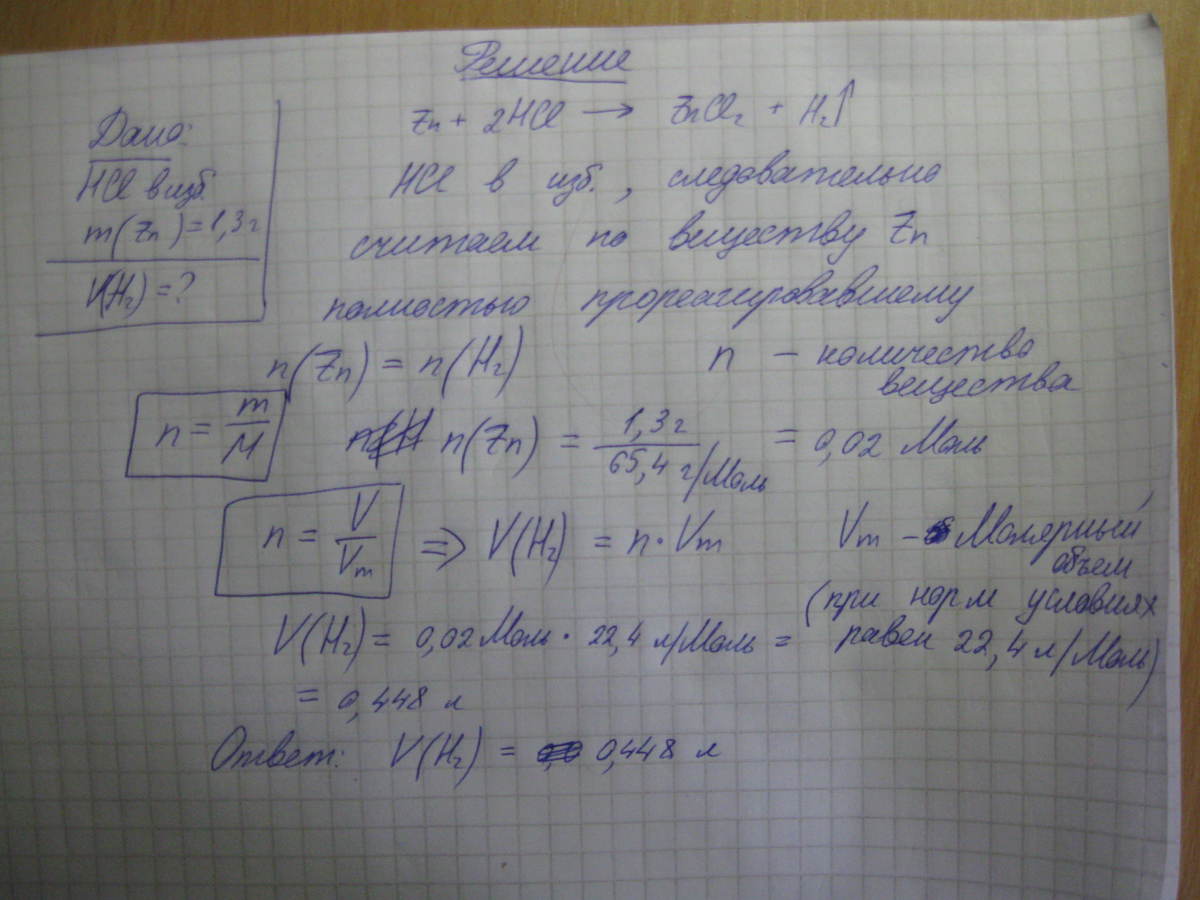 Решение
Дано:
HCl в изб.
m(Zn)=1,3г
V(H₂)=?
Zn + 2HCl → ZnCl₂ + H₂↑
HCl в изб., следовательно
считаем по веществу Zn
полностью прореагировавшему
n(Zn) = n(H₂)
n – количество
вещества
n = m/M
n(Zn) = 1,3г / 65,4 г/Моль = 0,02 Моль
n = V/Vm ⇒ V(H₂) = n·Vm
Vm – Молярный
объем
(при норм условиях
равен 22,4 л/Моль)
V(H₂) = 0,02 Моль · 22,4 л/Моль =
= 0,448 л
Ответ: V(H₂) = 0,448 л